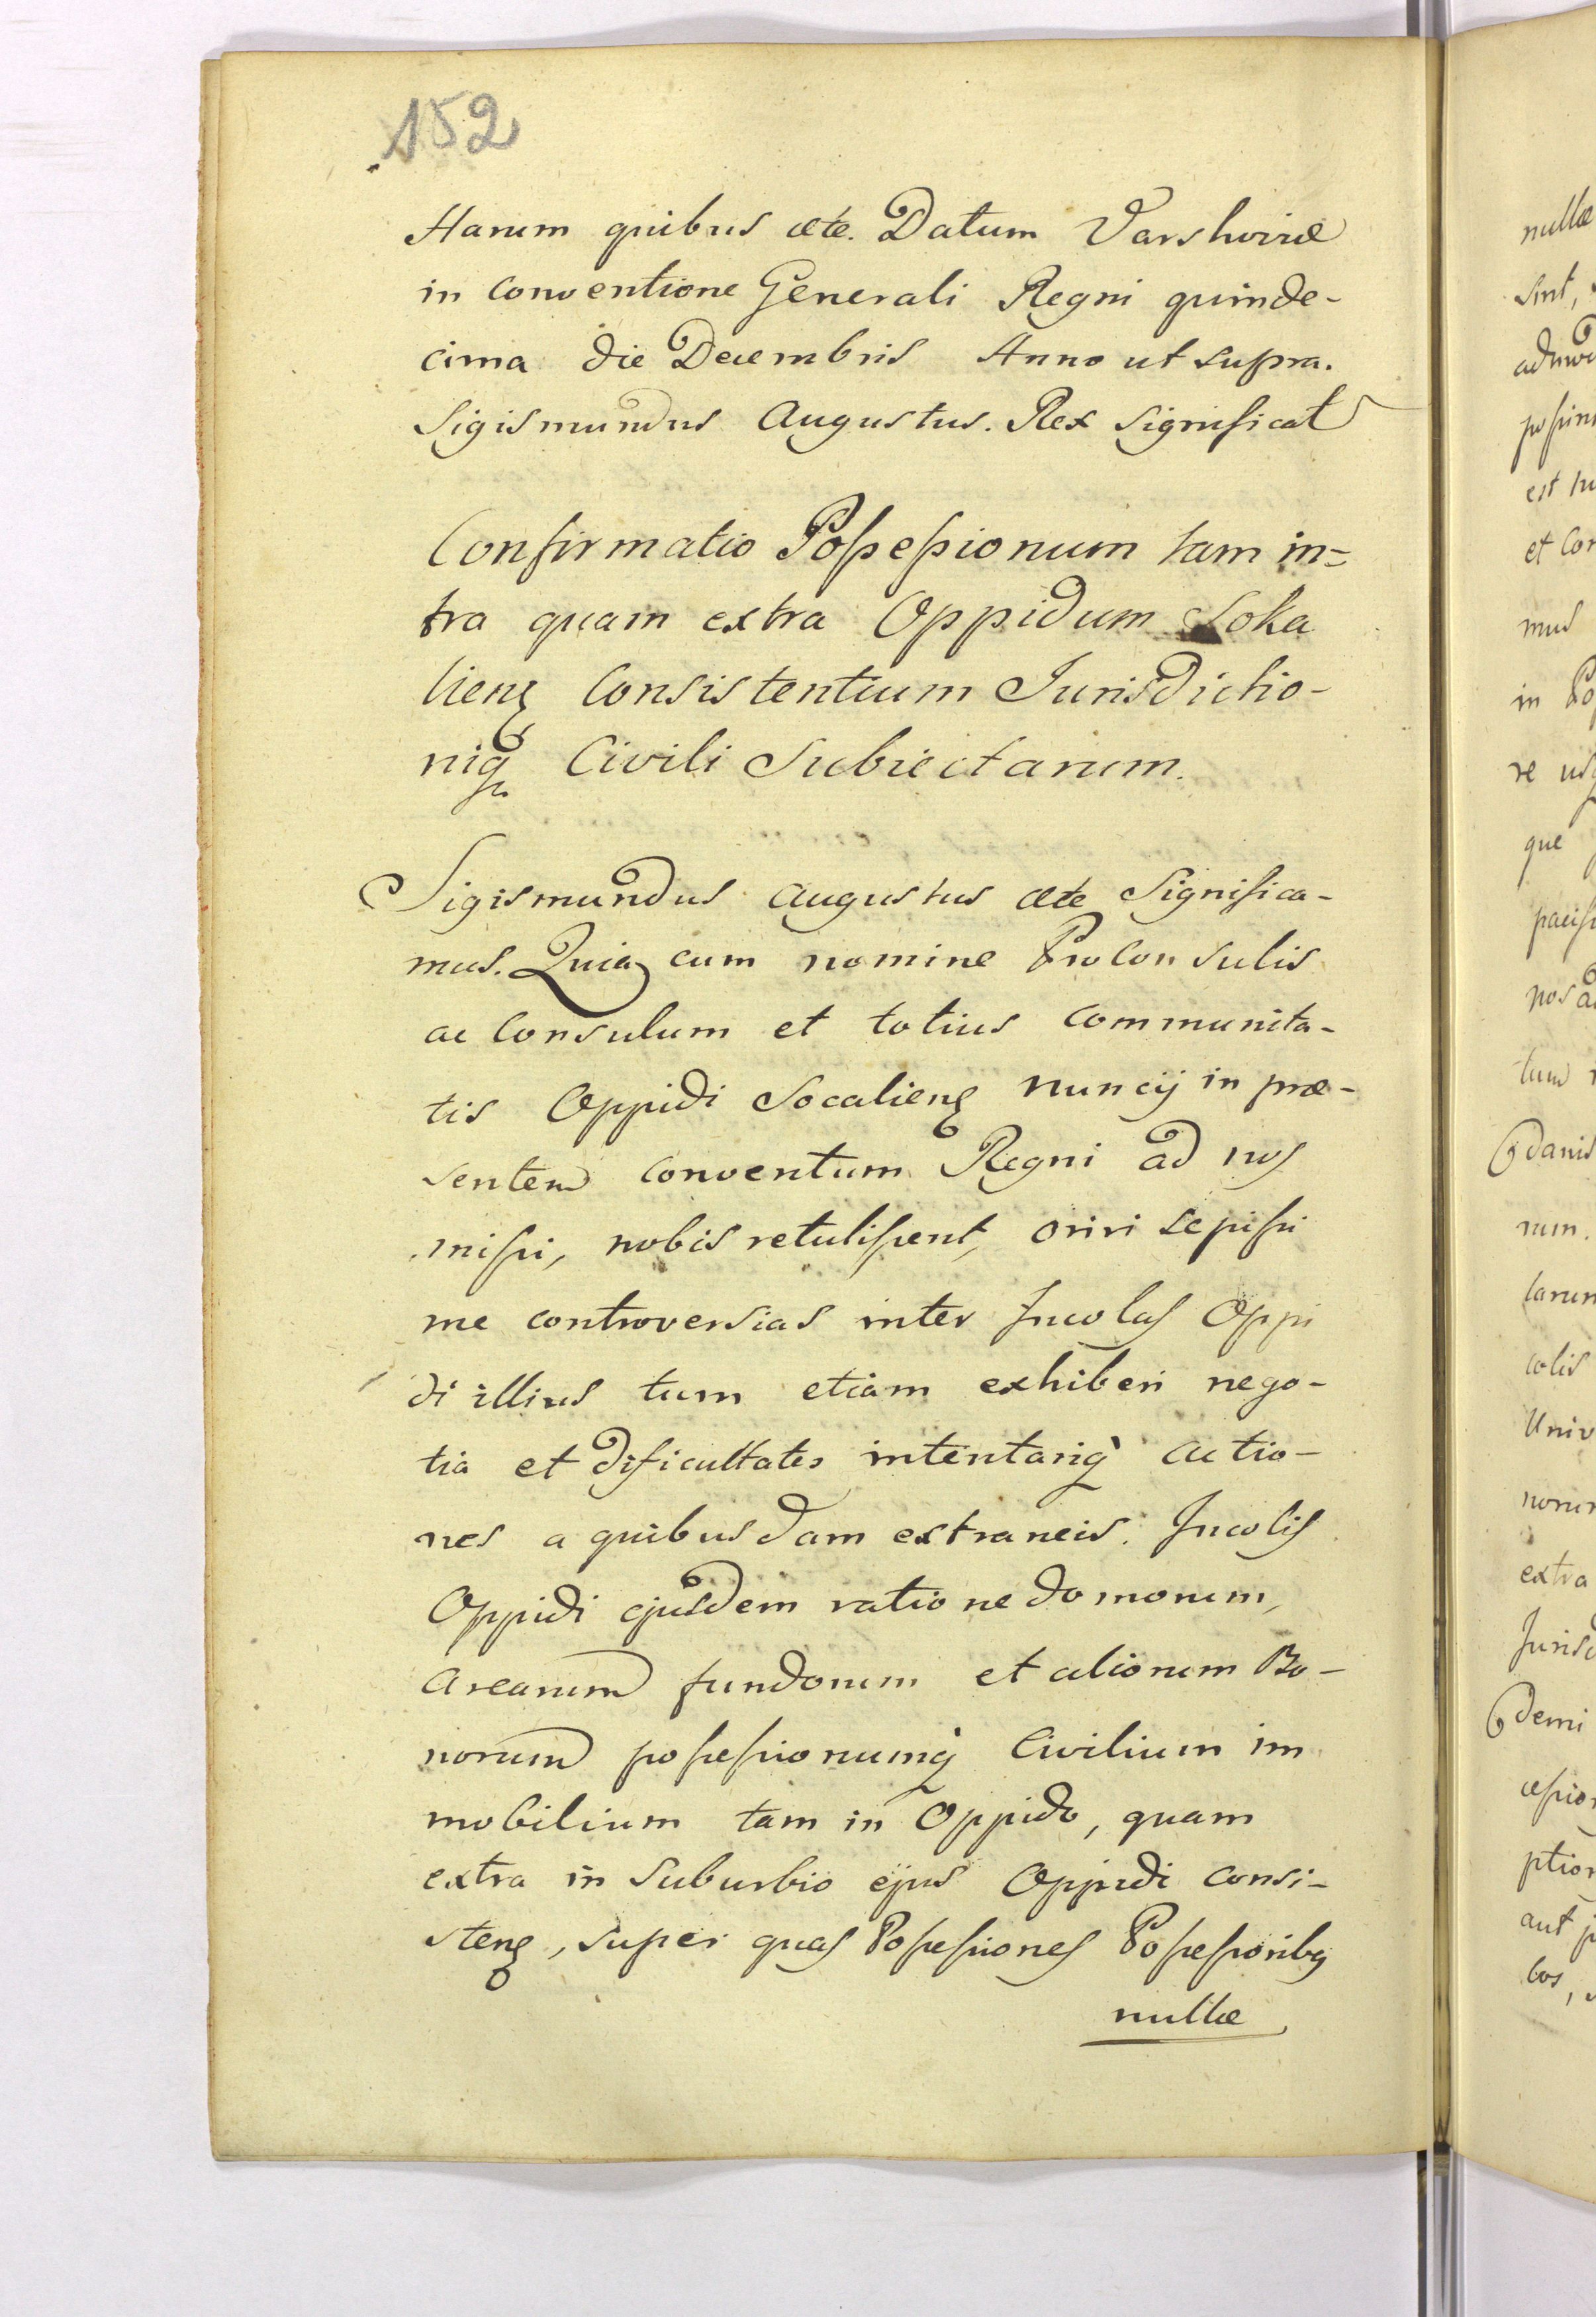 152
Harum quibus ætc. Datum Varshoviæ
in conventione Generali Regni quinde-
cima die Decembris Anno ut supra.
Sigismundus Augustus. Rex significat
Confirmatio Poſseſsionum tam in=
tra quam extra Oppidum Soka
lienς Consistentium Jurisdictio-
niq́ Civili Subiectarum.
Sigismundus Augustus ætc Significa-
mus. Quia cum nomine Proconsulis
ac Consulum et totius communita-
tis Oppidi Socalienς nuncij in præ-
sentem conventum Regni ad nos
miſsi, nobis retuliſsent, oriri sepiſsi
me controversias inter Incolas Oppi
di illius tum etiam exhiberi nego-
tia et dificultates intentariq́ actio-
nes a quibusdam extraneis. Incolis
Oppidi ejusdem ratione domorum,
Arearum fundorum et aliorum Bo-
norum poſseſsionumq́ Civilium im
mobilium tam in Oppido, quam
extra in Suburbio ejus Oppidi consi-
stenς, super quas Poſseſsiones Poſseſsoribꝯ
nullæ
nullæ
sint,
est
et Con
mus
in
que
colis
Univ
extra